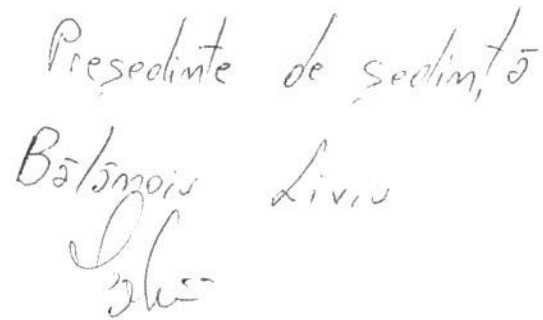 Președinte de ședință
Bălănoiu Liviu